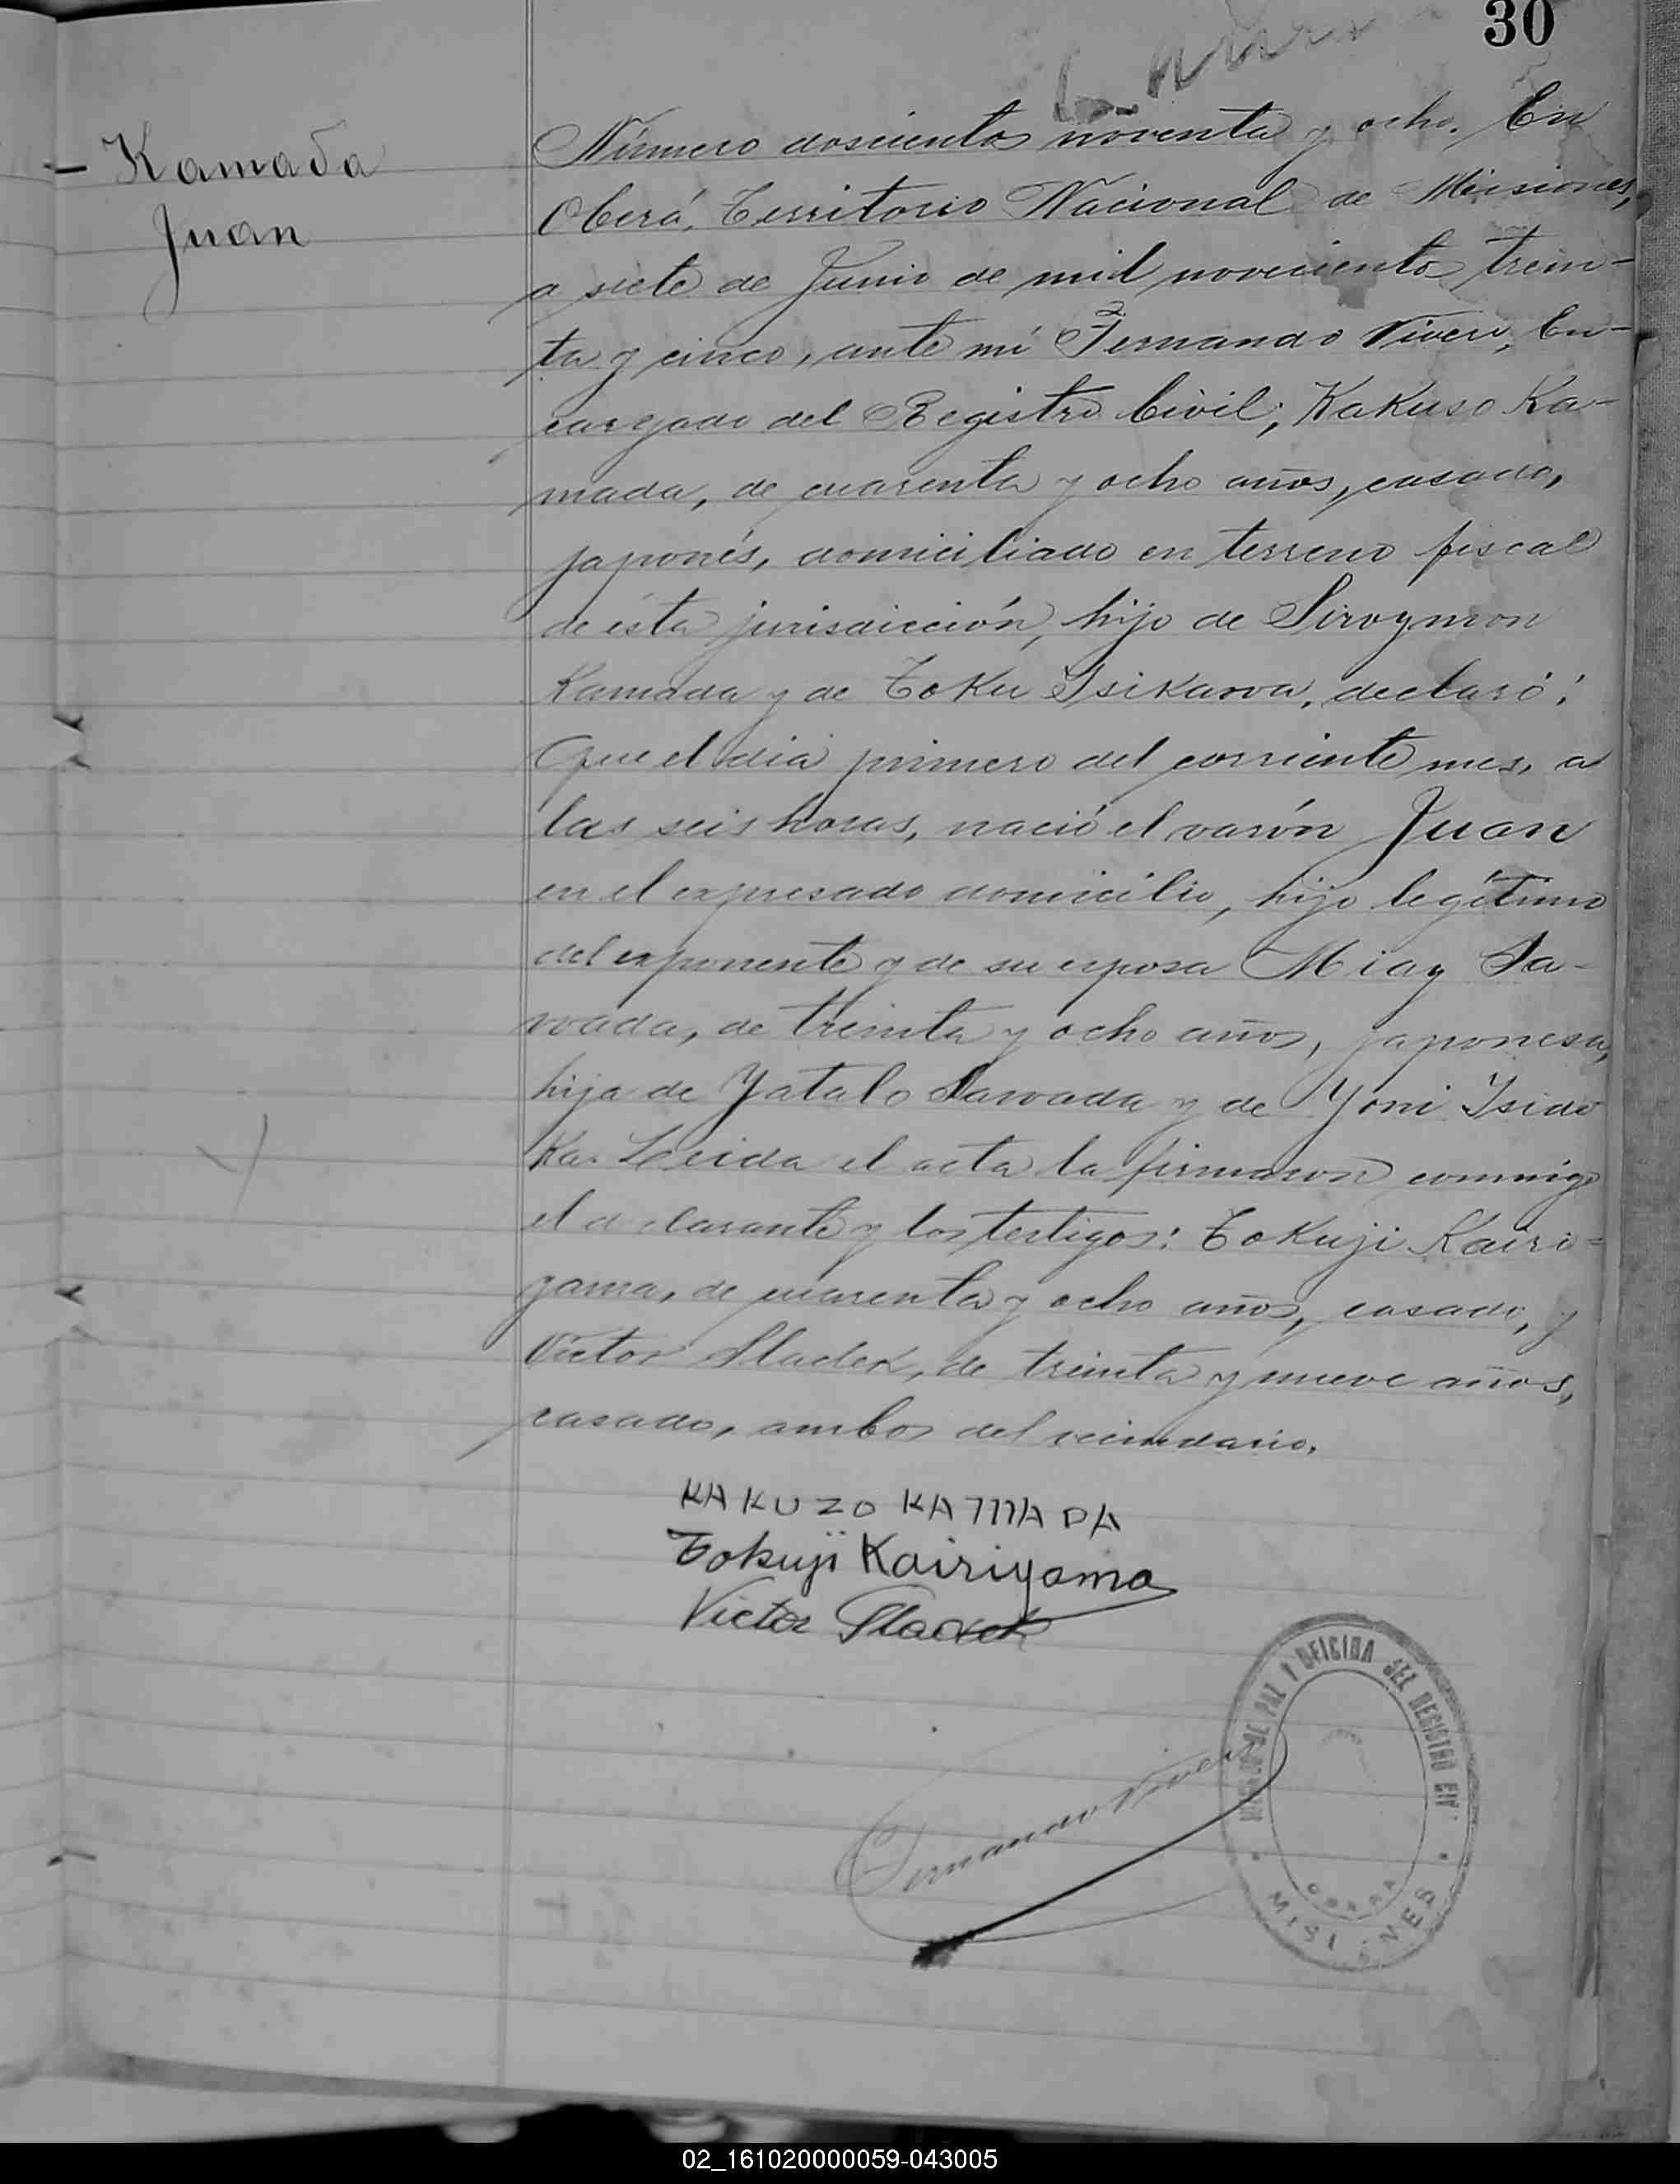 30
Kamada
Juan
Número doscientos noventa y ocho. En
Oberá, Territorio Nacional de Misiones,
a siete de Junio de mil novecientos trein-
ta y cinco, ante mí Fernando Vivero, En-
cargado del Registro Civil; Kakuso Ka-
mada, de cuarenta y ocho años, casado,
japonés, domiciliado en terreno fiscal
de ésta jurisdicción, hijo de Siroymon
Kamada y de Toku Isikawa, declaró:
Que el dia primero del corriente mes, a
las seis horas, nació el varón Juan
en el expresado domicilio, hijo legítimo
del exponente y de su esposa Miay Sa-
wada, de treinta y ocho años, japonesa,
hija de Yatalo Sawada y de Yoni Isido
ka. Leida el acta la firmaron conmigo
el declarante y los testigos: Tokuji Kairi=
yama, de cuarenta y ocho años, casado, y
Víctor Sladek, de treinta y nueve años,
casado, ambos del vecindario.
KAKUZO KAMADA
Tokuji Kairiyama
Victor Sladek
Fernando Vivero
DE PAZ Y OFICINA DEL REGISTRO CIV
OBERA
MISIONES
02_161020000059-043005